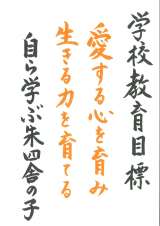 学校教育目標
愛する心を育み
生きる力を育てる
自ら学ぶ朱四舎の子